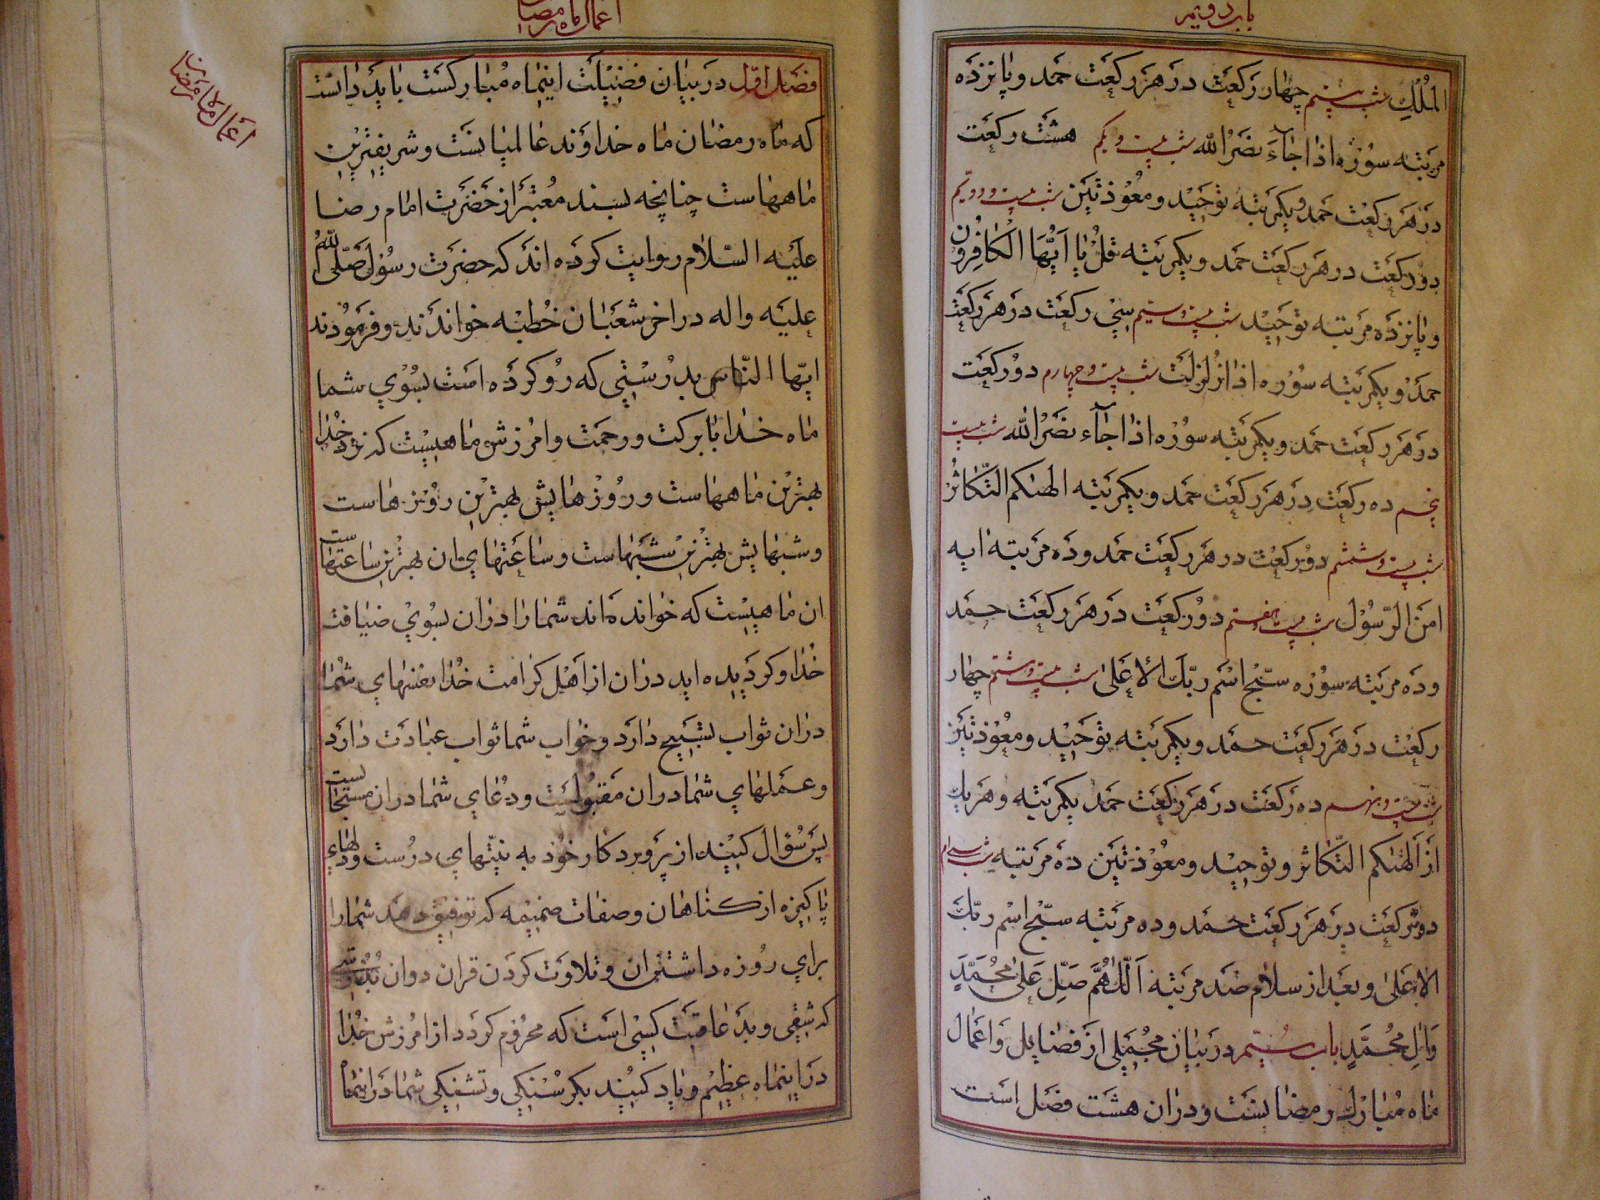 باب دویم
الملک شب بیستم چهار رکعت در هر رکعت حمد و پانزده
مرتبه سوره اذا جاء نصر الله شب بیست و یکم هشت رکعت
در هر رکعت حمد و یکمرتبه توحید و معوذتین شب بیست و دویم
دو رکعت در هر رکعت حمد و یکمرتبه قل یا ایها الکافرون
و پانزده مرتبه توحید شب بیست و سیم سی رکعت در هر رکعت
حمد و یکمرتبه سوره اذا زلزلت شب بیست و چهارم دو رکعت
در هر رکعت حمد و یکمرتبه سوره اذا جاء نصر الله شب بیست
پنجم ده رکعت در هر رکعت حمد و یکمرتبه الهیکم التکاثر
شب بیست و ششم دو رکعت در هر رکعت حمد و ده مرتبه ایه
امن الرسول شب بیست هفتم دو رکعت در هر رکعت حمد
و ده مرتبه سوره سبح اسم ربک الاعلی شب بیست و هشتم چهار
رکعت در هر رکعت حمد و یکمرتبه توحید و معوذتین
شب بیست و نهم ده رکعت در هر رکعت حمد یکمرتبه و هر یک
از الهیکم التکاثر و توحید و معوذتین ده مرتبه شب سی ام
دو رکعت در هر رکعت حمد و ده مرتبه سبح اسم ربک
الاعلی و بعد از سلام صد مرتبه اللهم صل علی محمد
و ال محمد باب سیم در بیان مجملی از فضایل و اعمال
ماه مبارک رمضانست و در ان هشت فصل است
اعمال ماه رمضان
اعمال ماه رمضان
فصل اول در بیان فضیلت اینماه مبارکست باید دانست
که ماه رمضان ماه خداوند عالمیانست و شریفترین
ماههاست چنانچه بسند معتبر از حضرت امام رضا
علیه السلام روایت کرده اند که حضرت رسول صلی الله
علیه واله در اخر شعبان خطبه خواندند و فرمودند
ایها الناس بدرستی که رو کرده است بسوی شما
ماه خدا با برکت و رحمت و امرزش ماهیست که نزد خدا
بهترین ماههاست و روزهایش بهترین روزهاست
و شبهایش بهترین شبهاست و ساعتهای ان بهترین ساعتهاست
ان ماهیست که خوانده اند شما را در ان بسوی ضیافت
خدا و کردیده اید در ان از اهل کرامت خدا نفسهای شما
در ان ثواب تسبیح دارد و خواب شما ثواب عبادت دارد
و عملهای شما در ان مقبولست و دعای شما در ان مستجابست
پس سؤال کنید از پروردکار خود به نیتهای درست و دلهای
پاکیزه از کناهان و صفات ذمیمه که توفیق دهد شما را
برای روزه داشتن ان و تلاوت کردن قران در ان بدرستی
که شقی و بد عاقبت کسی است که محروم کردد از امرزش خدا
در اینماه عظیم و یاد کنید بکرسنکی و تشنکی شما در اینماه